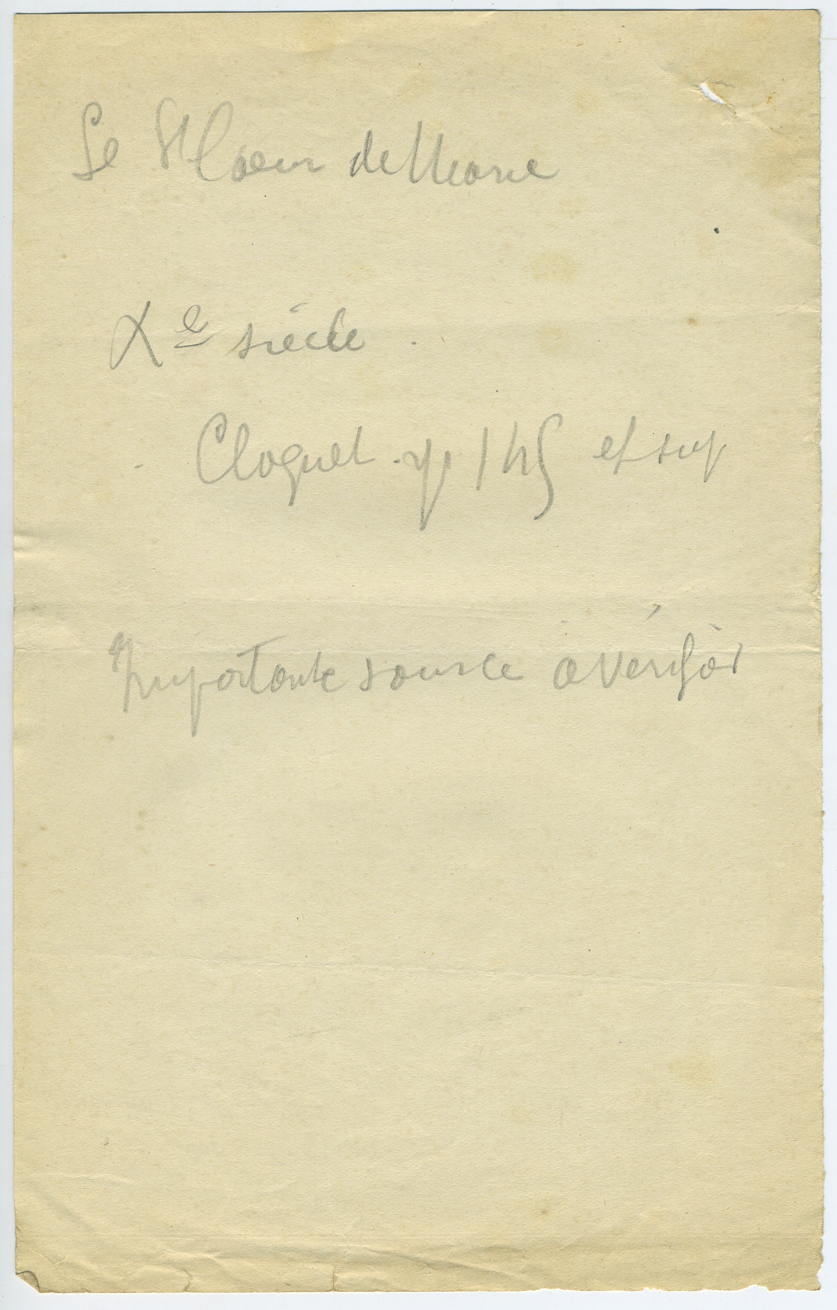 Le St Coeur de Marie
Xe siècle.
Cloquet p 145 et suiv
Importante source à vérifier